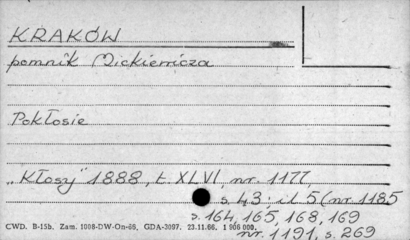 KRAKÓW
pomnik Mickiewicza
Pokłosie
"Kłosy" 1888, t. XLVI, nr. 1177,
s. 43; il 5 (nr. 1185
s. 164, 165, 168, 169
CWD. B-15b. Zam. 1008-DW-On-66, GDA-3097. 23.11.66. 1 000 000.
nr. 1191, s. 269